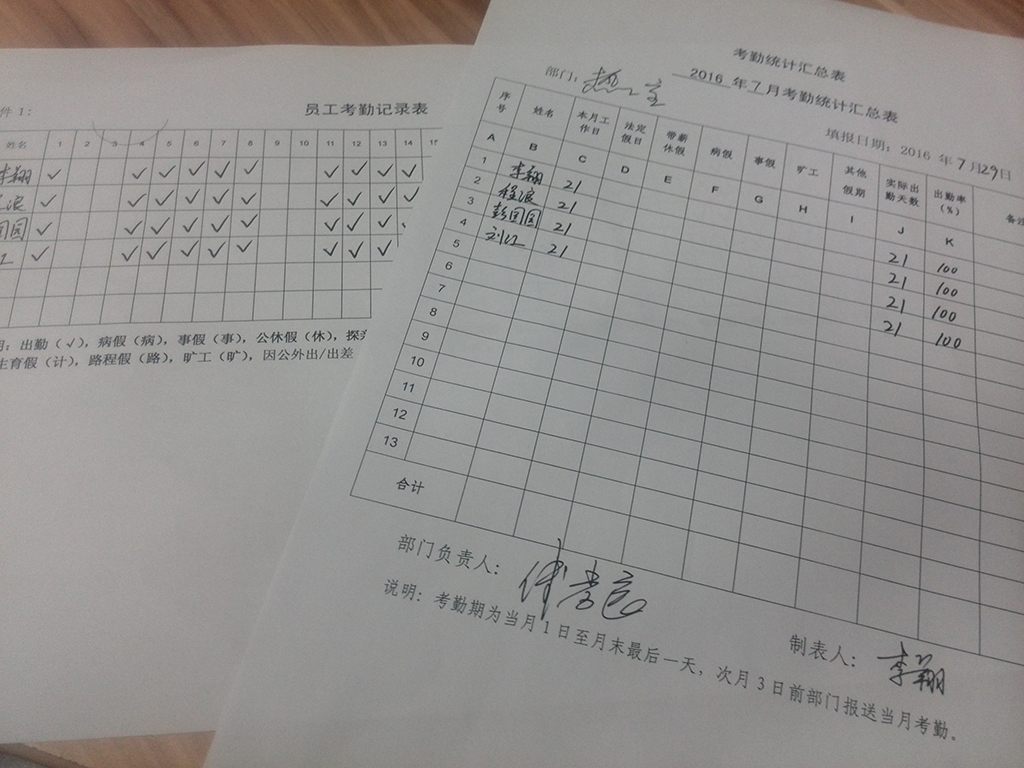 件 1：
员工考勤记录表
姓名 1 2 3 4 5 6 7 8 9 10 11 12 13 14 15
李翔 √ √ √ √ √ √ √ √ √ √
程浪 √ √ √ √ √ √ √ √ √ √
园园 √ √ √ √ √ √ √ √ √
红 √ √ √ √ √ √ √ √ √
：出勤（√），病假（病），事假（事），公休假（休），探
生育假（计），路程假（路），旷工（旷），因公外出/出差
考勤统计汇总表
2016 年 7 月考勤统计汇总表
部门：
填报日期：2016 年 7 月 29 日
序号 姓名 本月工作日 法定假日 带薪休假 病假 事假 旷工 其他假期 实际出勤天数 出勤率（%） 备注
A B C D E F G H I J K
1 李翔 21 21 100
2 程浪 21 21 100
3 彭园园 21 21 100
4 刘红 21 21 100
5
6
7
8
9
10
11
12
13
合计
部门负责人：
制表人：李翔
说明：考勤期为当月 1 日至月末最后一天，次月 3 日前部门报送当月考勤。